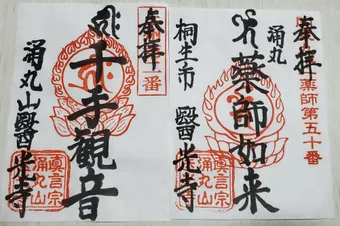 奉拝
涌丸
薬師第五十番
薬師如来
桐生市
醫光寺
奉拝
一番
千手観音
涌丸山醫光寺
真言宗
涌丸山
真言宗
涌丸山